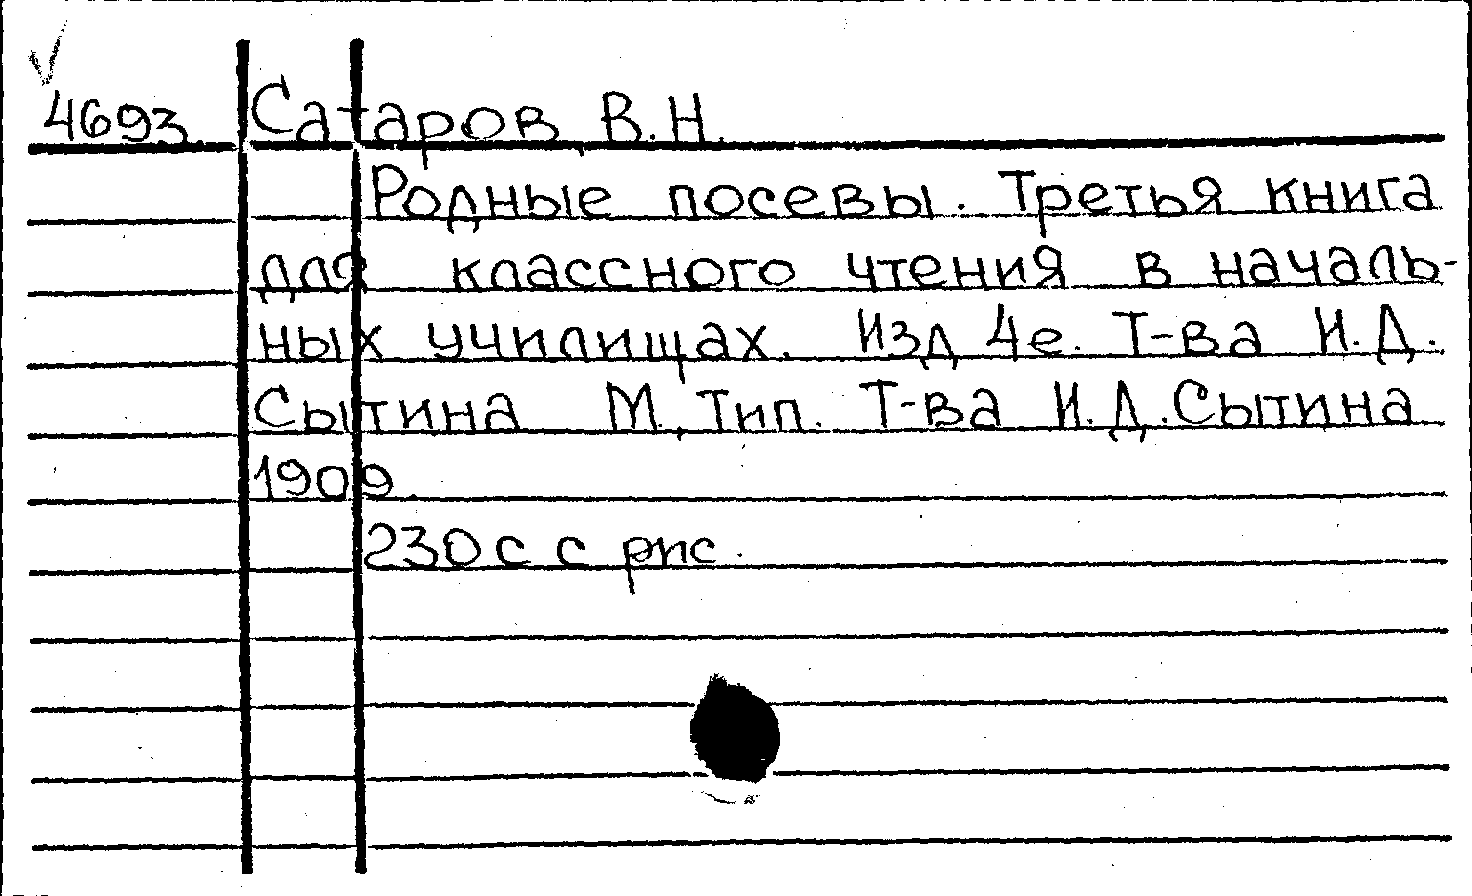 4693 Сатаров В.Н.
Родные посевы. Третья книга
для классного чтения в началь-
ных училищах. Изд 4е. Т-ва И.Д.
Сытина М. Тип. Т-ва И.Д. Сытина
1909
230 с с рис.